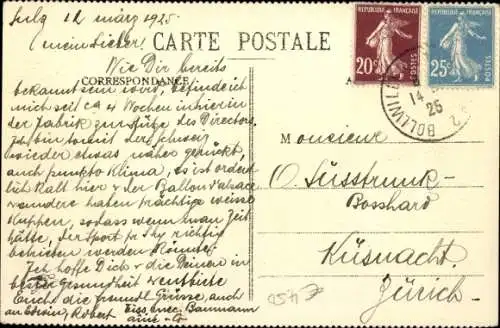 Sulz 12 märz 1925.
(mein Lieber!
CARTE POSTALE
REPUBLIQUE FRANÇAISE
20c
POSTES
REPUBLIQUE FRANÇAISE
25c
POSTES
BOLLWILLER
14
25
CORRESPONDANCE
Wie Dir bereits
bekannt sein wird, befinde ich
mich seit ca 4 Wochen in hier in
der Fabrik zur Stütze des Directors.
Ich bin somit der Schweiz
wieder etwas näher gerückt,
auch punkto Klima, es ist ordent
lich kalt hier & der Ballon d'alsace
& andere haben prächtige weisse
Kuppen, sodass wenn man Zeit
hätte, der Sport pr Sky richtig
betrieben werden könnte.
Ich hoffe Dich & die Deinen in
bester Gesundheit & entbiete
Euch die freundl Grüsse, auch
an Edwin, Robert
Baumann
Monsieur
O. Süsstrunk-
Bosshard
Küsnacht
Zürich
€ 450